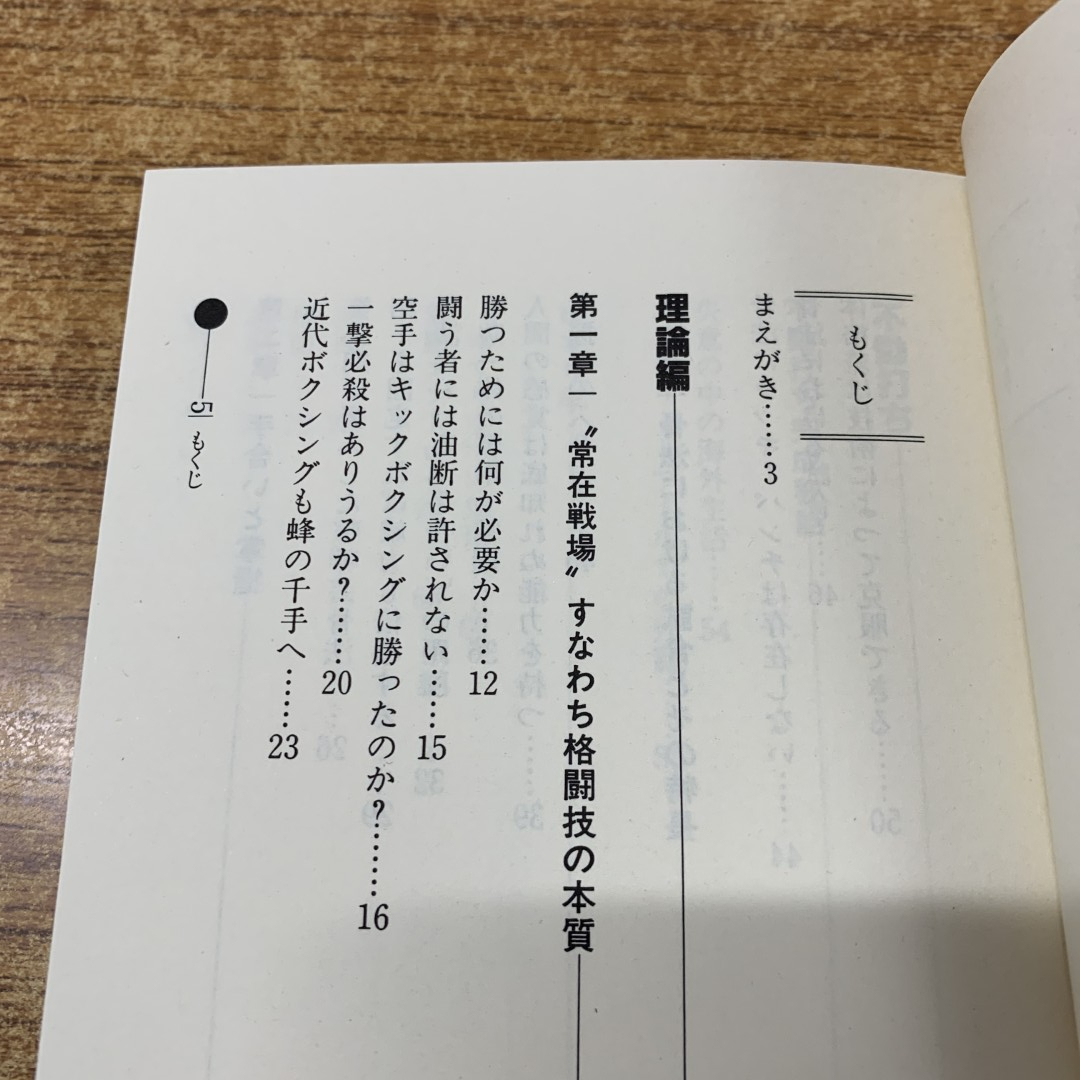 もくじ
まえがき……3
理論編
第一章 〝常在戦場〟すなわち格闘技の本質
勝つためには何が必要か……12
闘う者には油断は許されない……15
空手はキックボクシングに勝ったのか？………16
一撃必殺はありうるか？………20
近代ボクシングも蜂の千手へ……23
5 もくじ